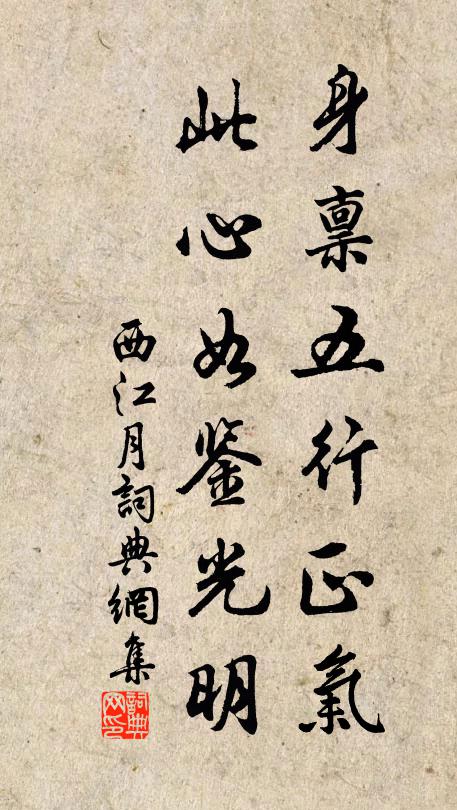 身稟五行正氣
此心如鉴光明
西江月詞典網集
詞典网印